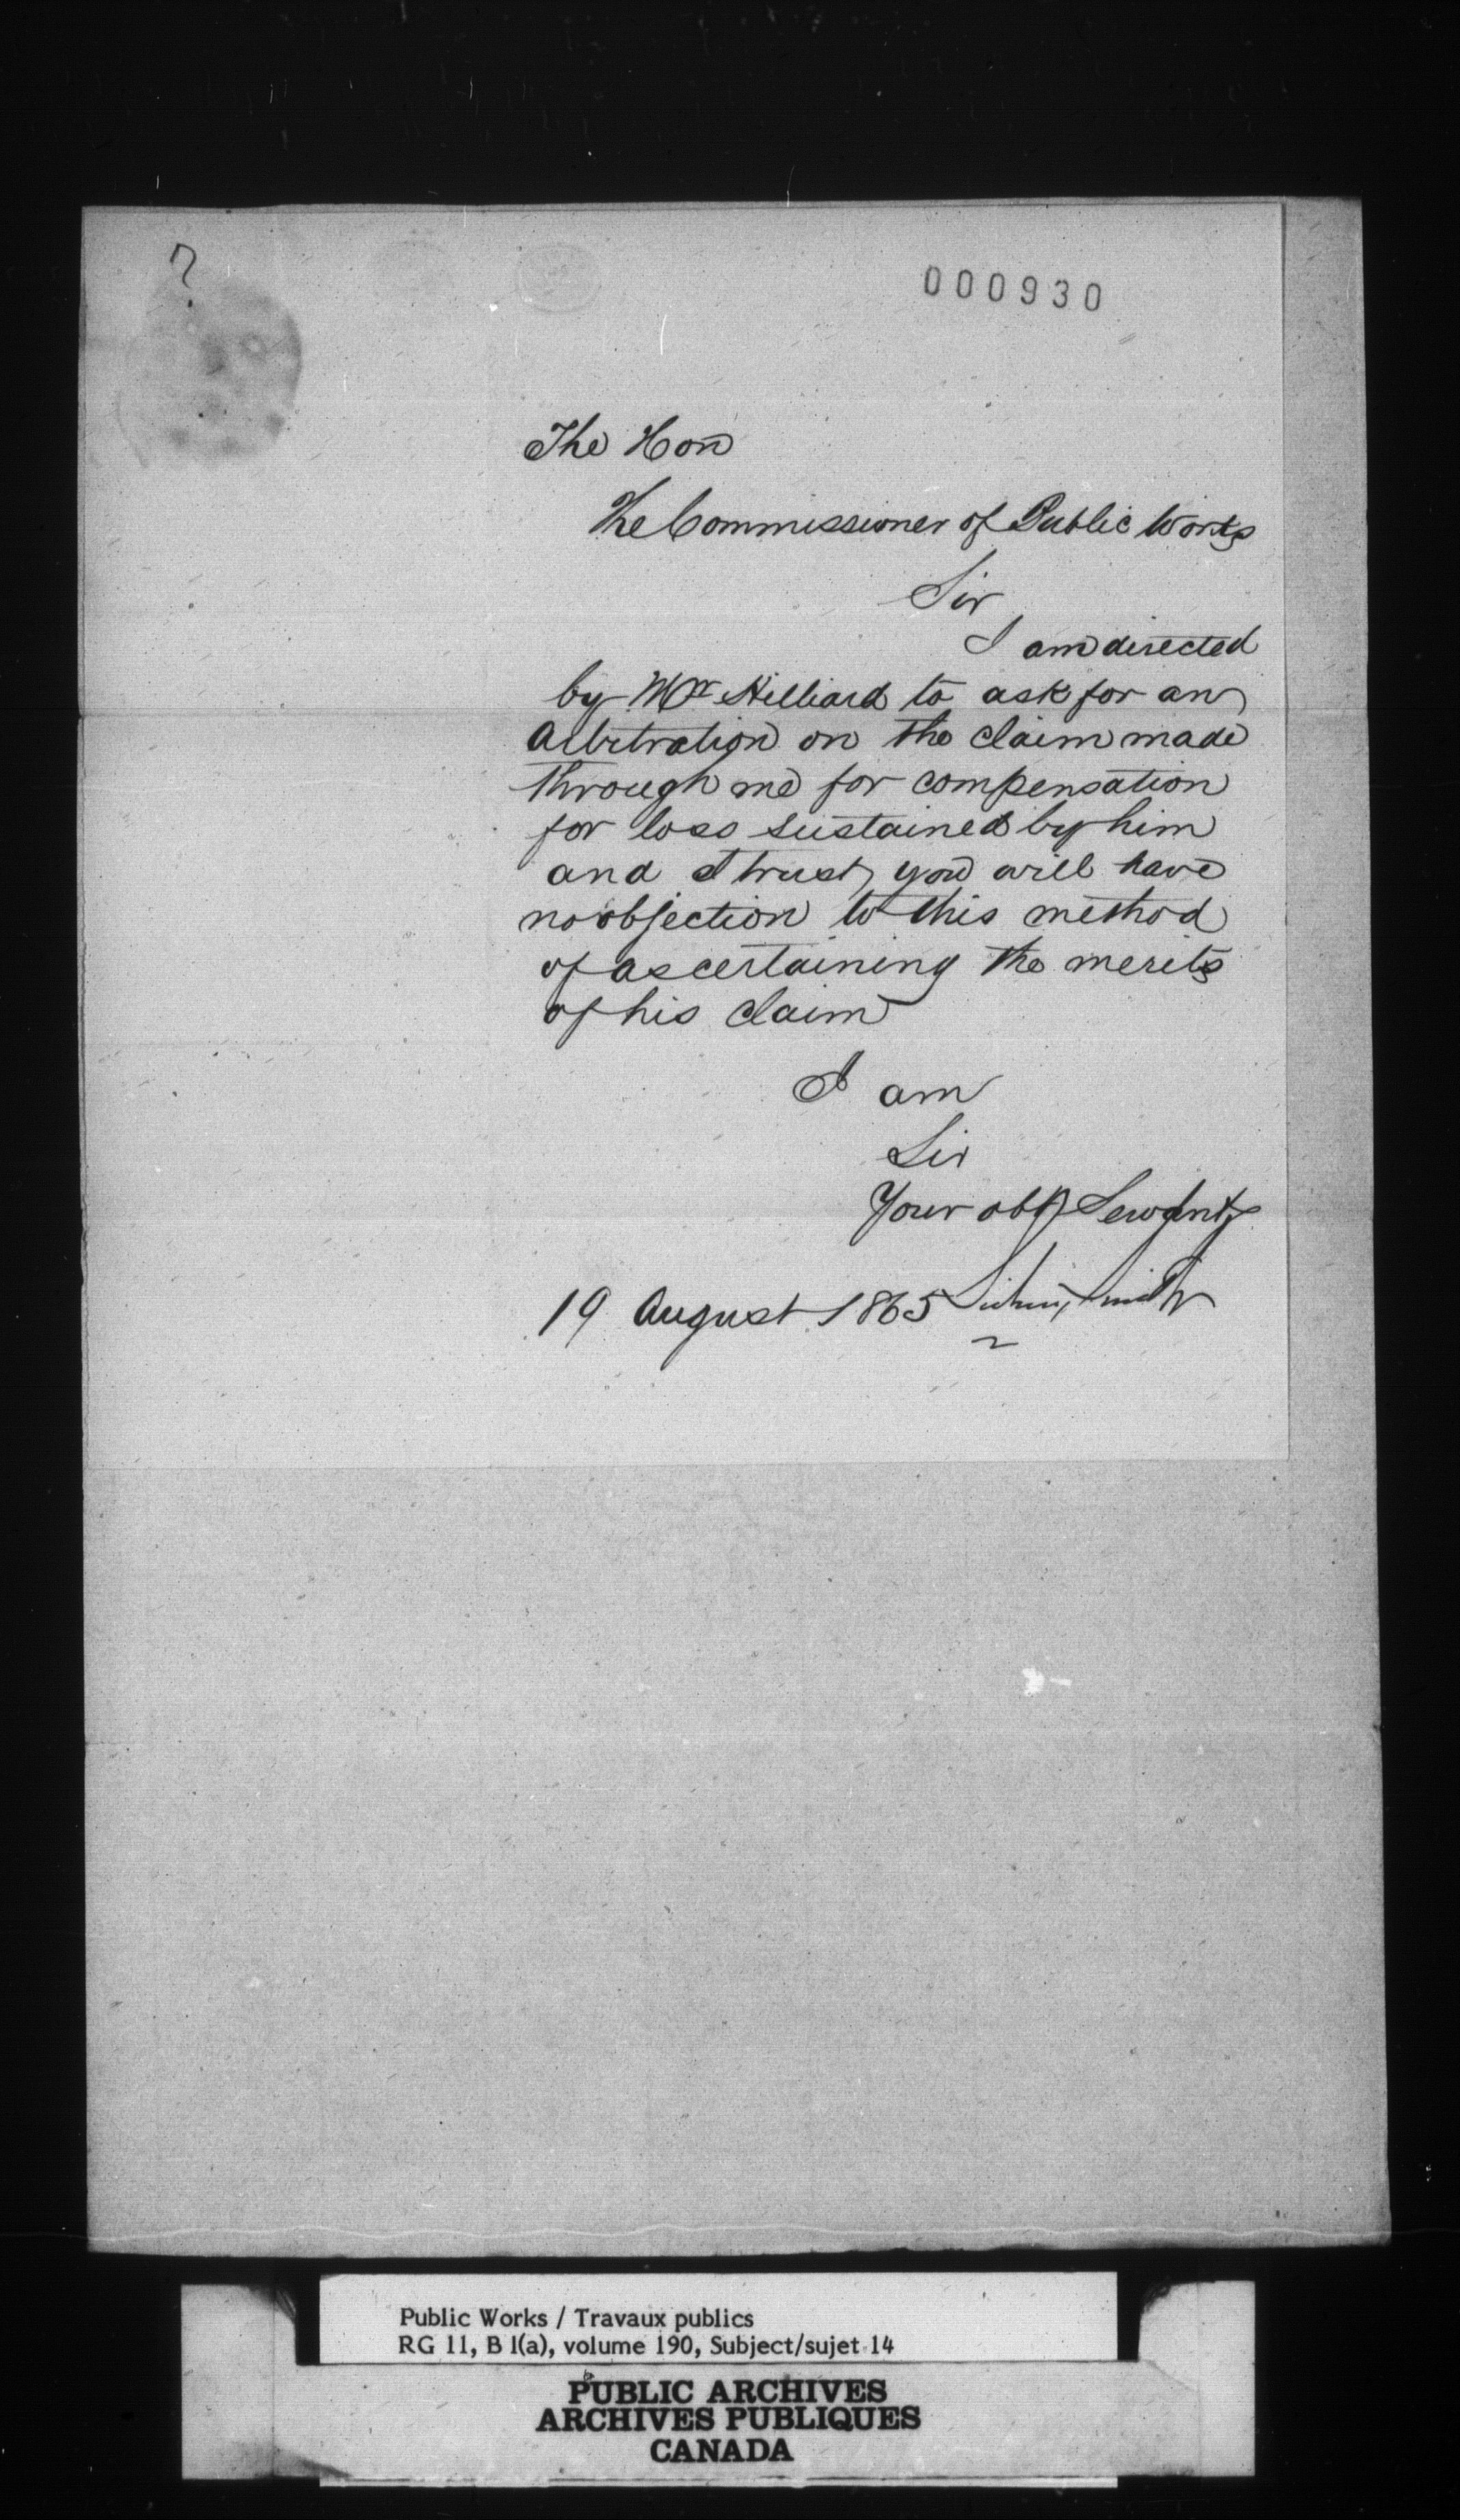 ?
000930
The Hon
The Commissioner of Public Works
Sir
I am directed
by Mr Hilliard to ask for an
Arbitration on the claim made
through me for compensation
for loss sustained by him
and I trust you will have
no objection to this method
of ascertaining the merits
of his claim
I am
Sir
Your obt Servant
19 August 1865
Public Works / Travaux publics
RG 11, B1(a), volume 190, Subject/sujet 14
PUBLIC ARCHIVES
ARCHIVES PUBLIQUES
CANADA